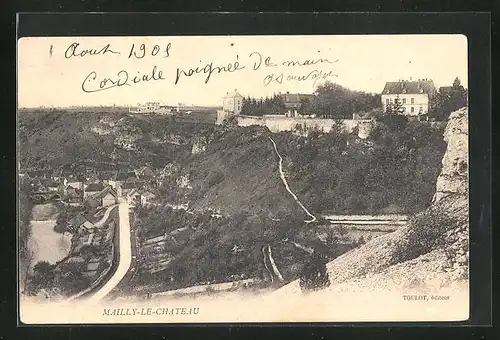 1 Aout 1908
Cordiale poignée de main
MAILLY-LE-CHATEAU
TOULOT, éditeur